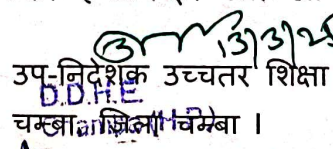 13/3/25
उप-निदेशक उच्चतर शिक्षा
D.D.H.E.
चम्बा, जिला चम्बा ।